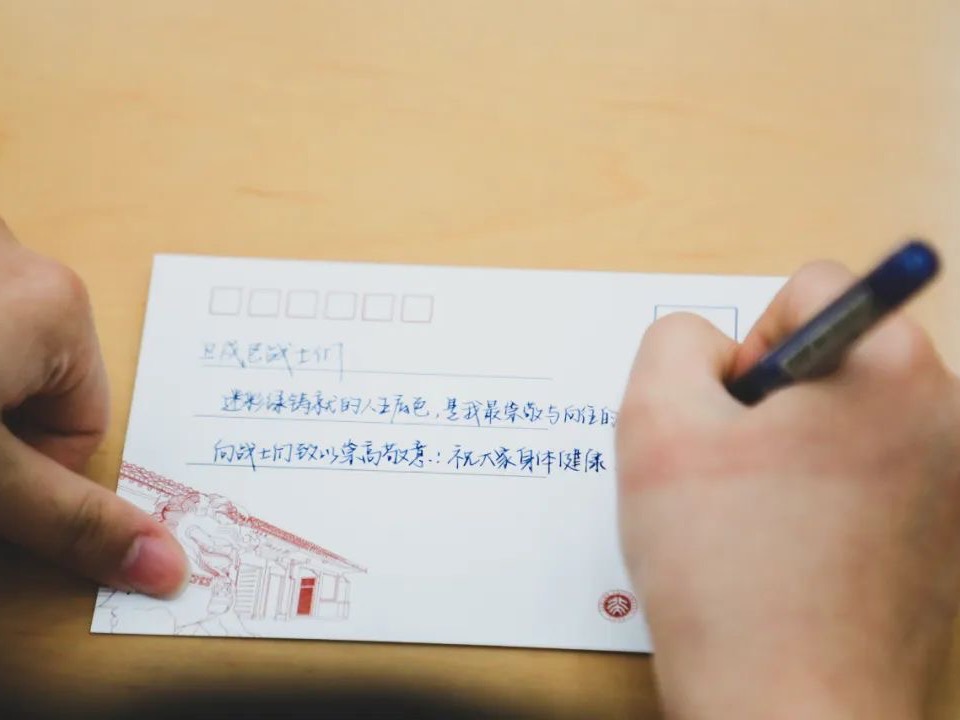 战士们
迷彩绿铸就的人生底色,是我最崇敬与向往的
向战士们致以崇高敬意:祝大家身体健康